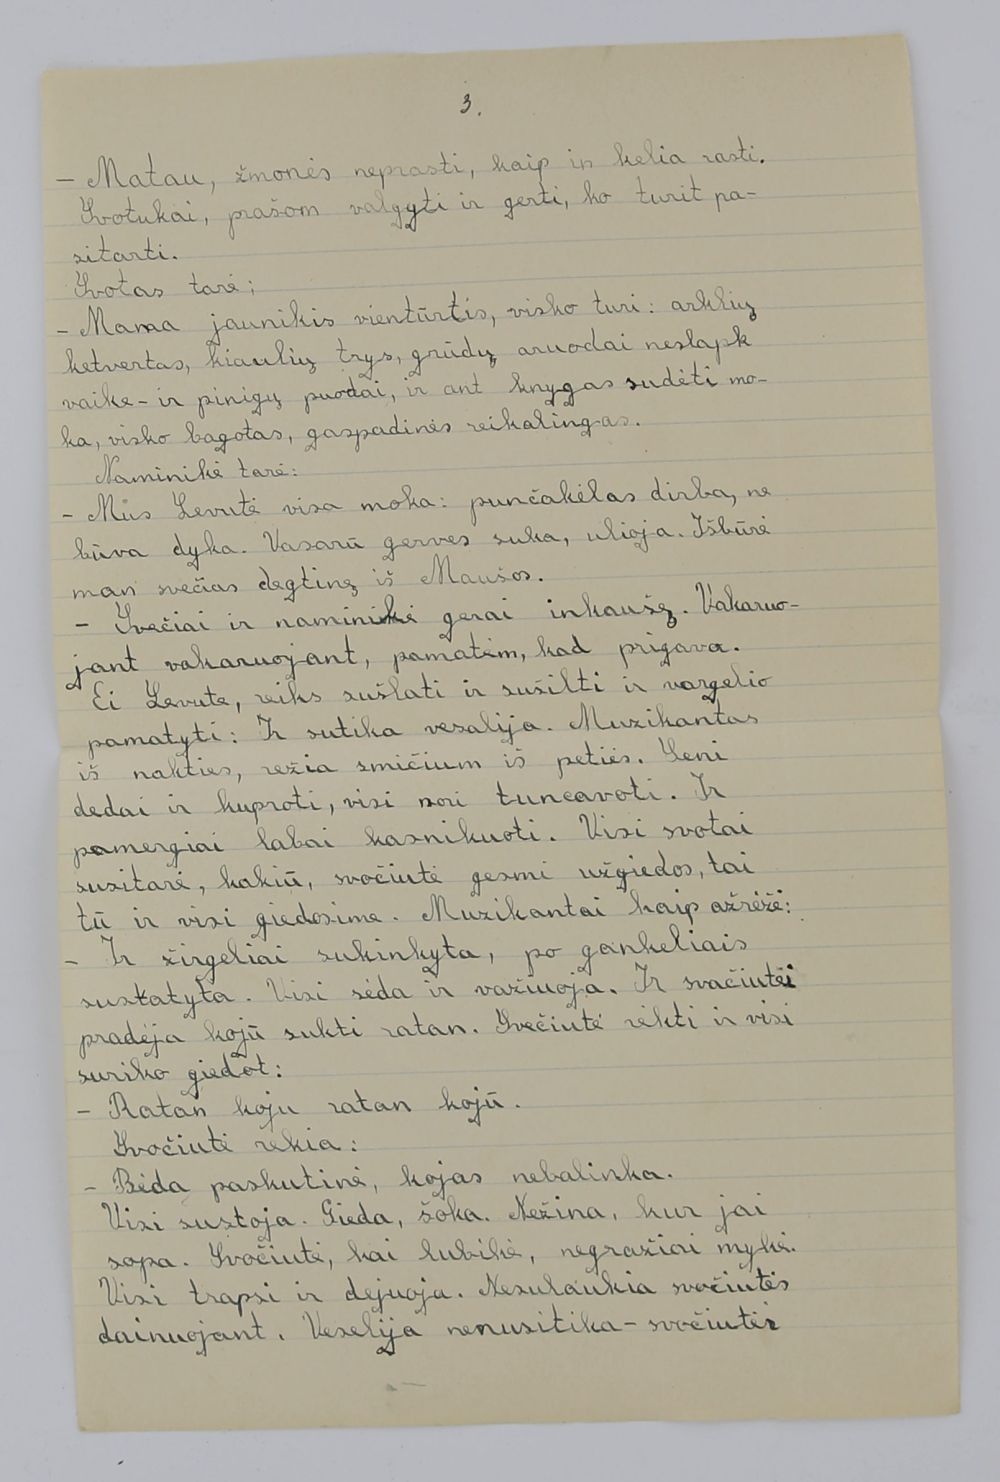 3.
- Matau, žmonės neprasti, kaip iš kelia rasti.
Svotukai, prašom valgyti ir gerti, ko turit pa-
sitarti.
Svotas tarė:
- Mama jaunikis vientūrtis, visko turi: arklių
ketvertas, kiaulių trys, grūdų aruodai neslapk
vaike - ir pinigų puodai, ir ant knygas sudėti mo-
ka, visko bagotas, gaspadinės reikalingas.
Naminikė tarė:
- Mūs Levutė visa moka: punčakėlas dirba, ne
būva dyka. Vasarū gerves suka, ulioja. Išbūrė
man svečias degtinę iš Maušos.
- Svečiai ir naminikė gerai inkaušę. Vakaruo-
jant vakaruojant, pamatėm, kad prigava.
Ei Levute, reiks sušlati ir sušilti ir vargelio
pamatyti: Ir sutika veselija. Muzikantas
iš nakties, režia smičium iš petiės. Seni
dedai ir kuproti, visi nori tuncavoti. Ir
pamergiai labai kasnikuoti. Visi svotai
susitarė, kakiū, svočiutė gesmi užgiedos, tai
tū ir visi giedosime. Muzikantai kaip ažrėžė:
- Ir žirgeliai sukinkyta, po gankeliais
sustatyta. Visi sėda ir važiuoja. Ir svačiutėi
pradėja kojū sukti ratan. Svečiutė rėkti ir visi
suriko giedot:
- Ratan koju ratan kojū.
Svočiutė rėkia:
- Bėda paskutinė, kojas nebalinka.
Visi sustoja. Gieda, šoka. Nežina, kur jai
sopa. Svočiutė, kai lubikė, negražiai mykė.
Visi trapsi ir dejuoja. Nesulaukia svočiutės
dainuojant. Veselija nenusitika - svočiutėi